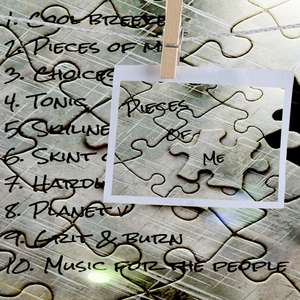 1. Cool breeze
2. Pieces of M
3. Choices
4. Tonic
5. Skyline
6. Skint
7. Hardl
8. Planet
9. Grit & burn
10. Music for the people
Pieces
of
me